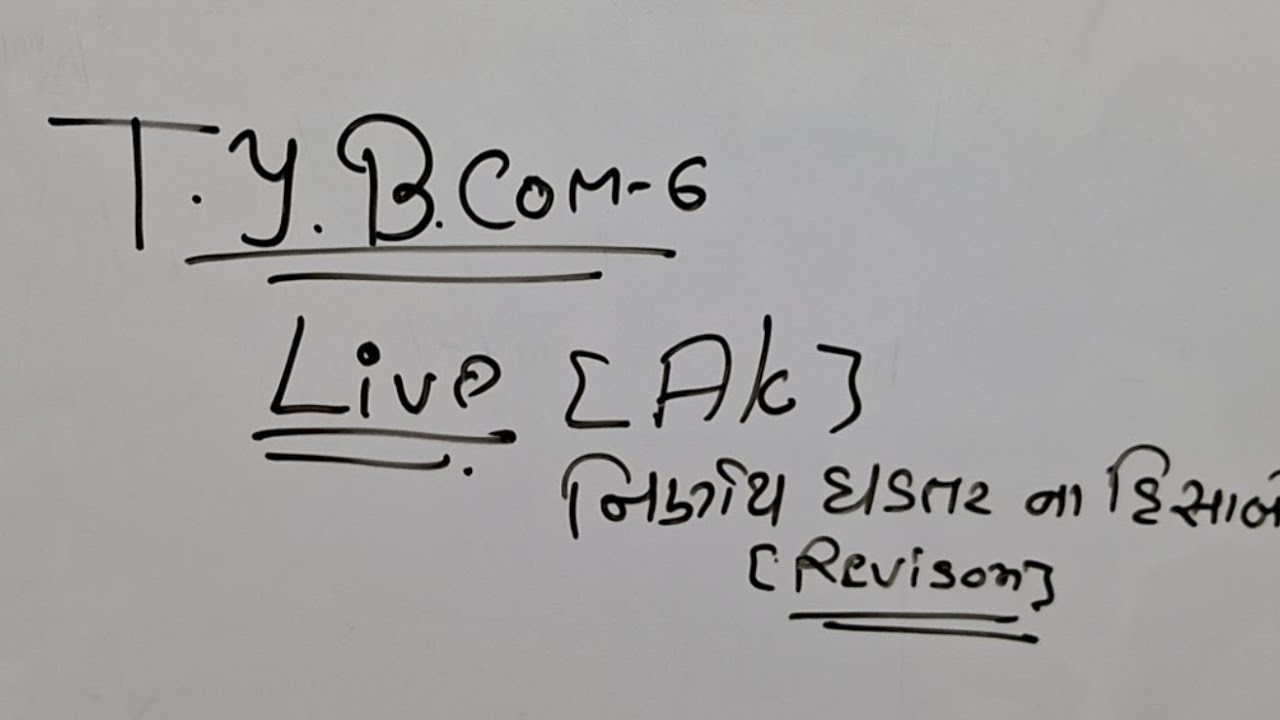 T.Y.B.COM-6
Live [Ak]
નિર્ણય ઘડતર ના હિસાબ
[Revison]